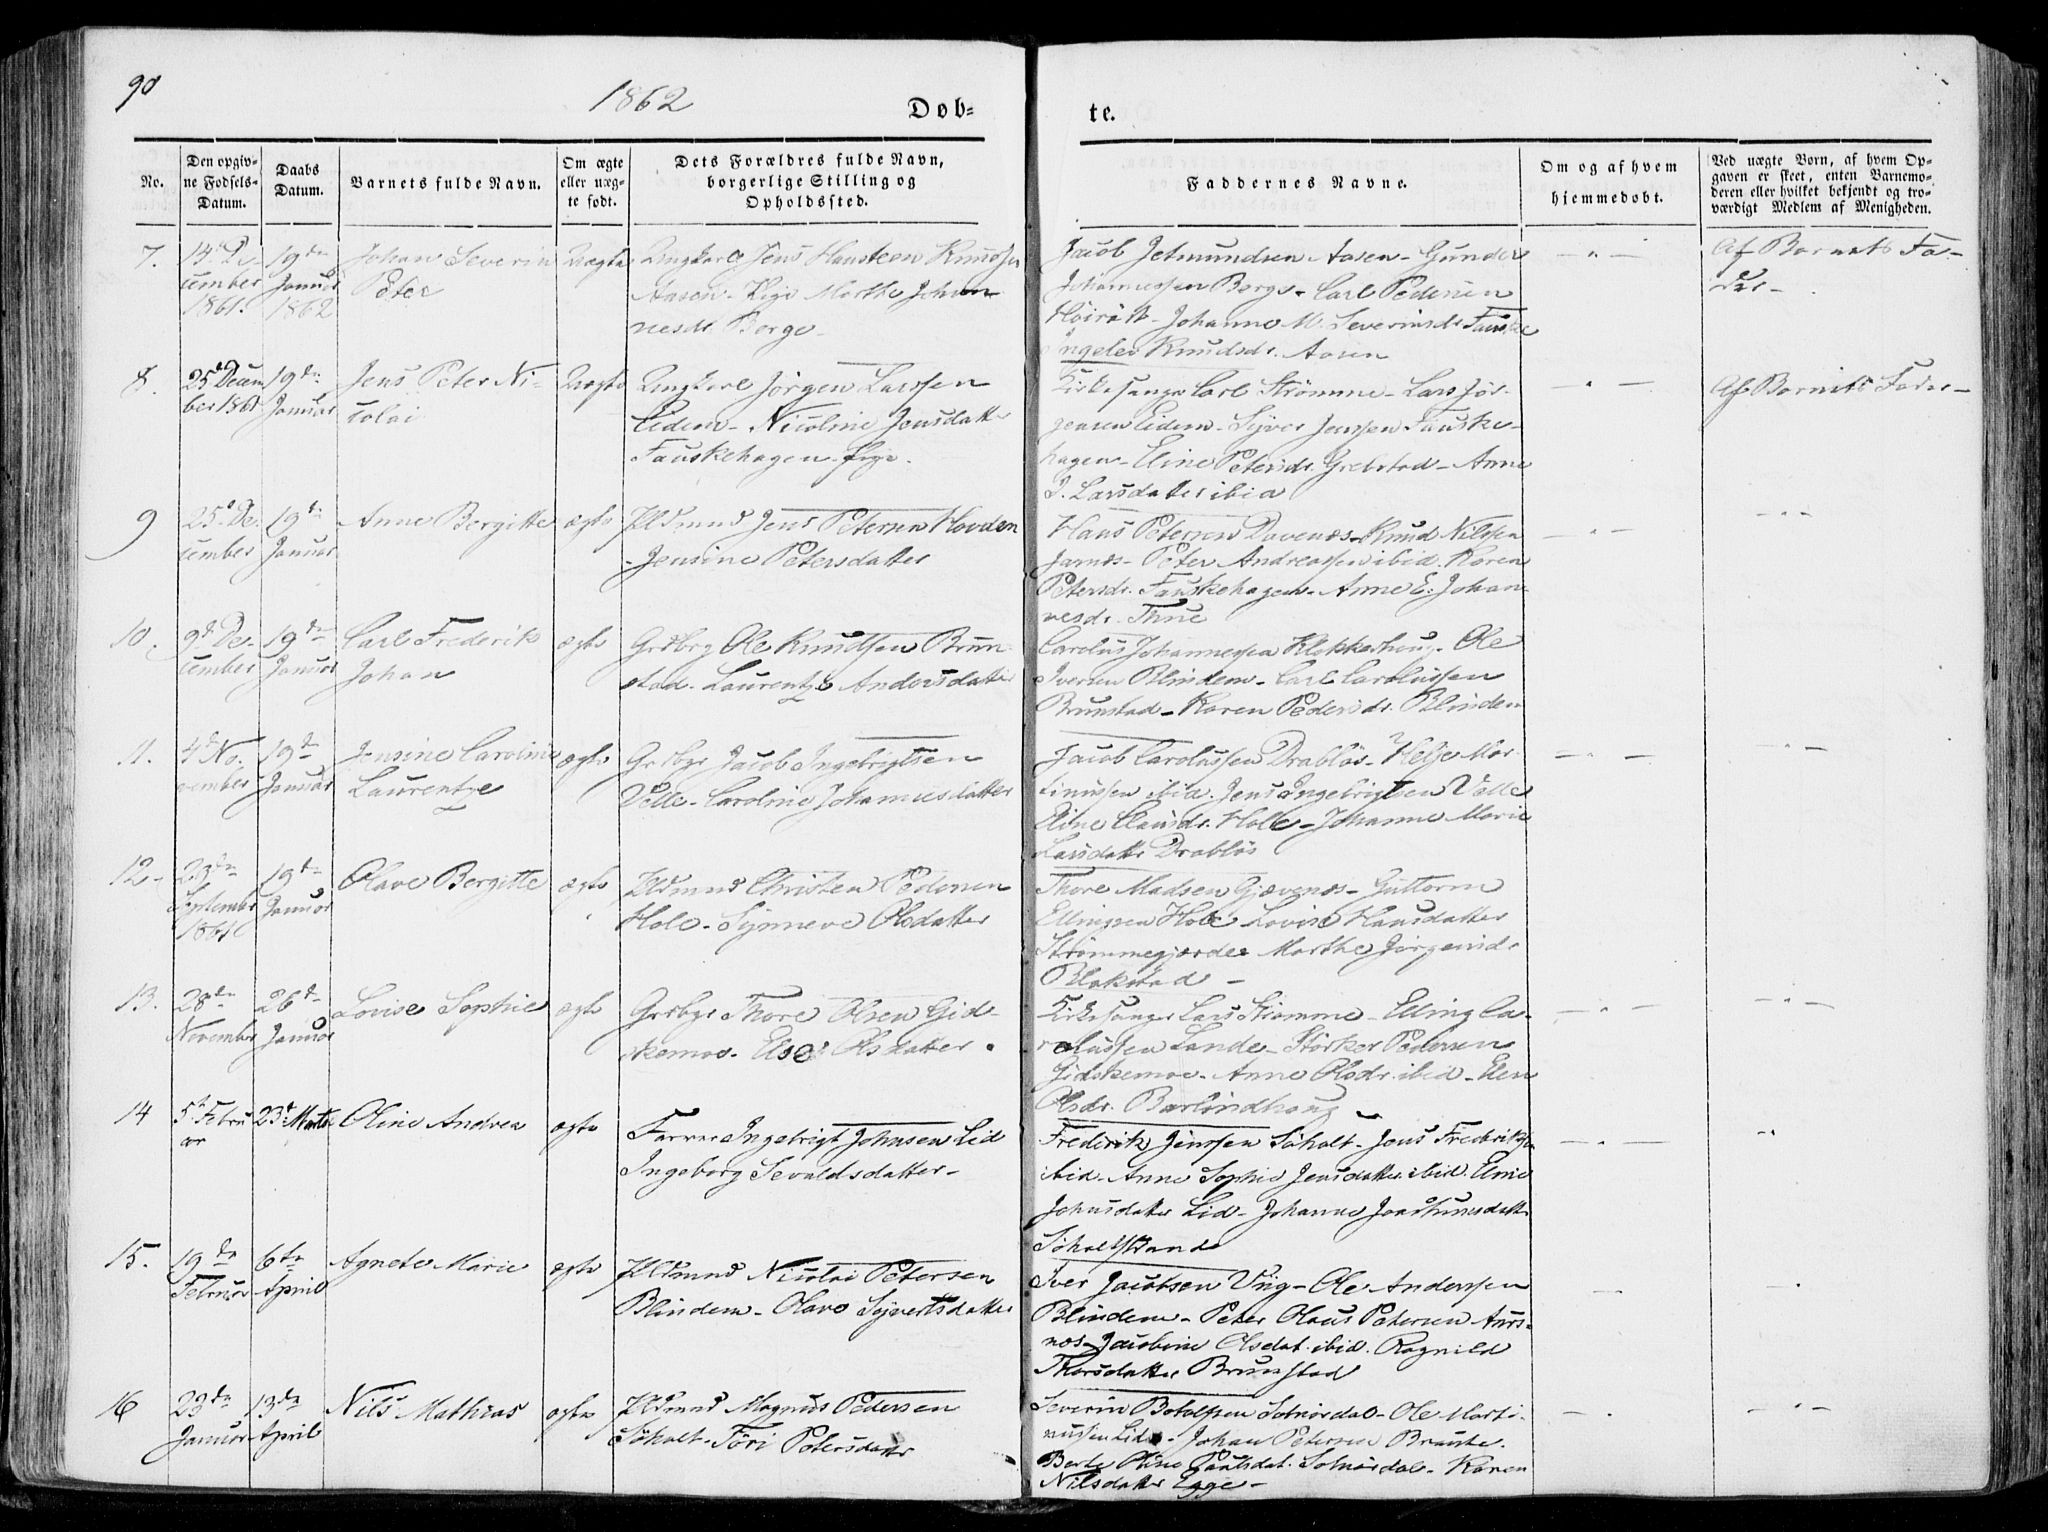 90
1862
Døb-
te.
No.
Den opgiv-
ne Fødsels-
Datum.
Daabs
Datum.
Barnets fulde Navn.
Om ægte
eller uæg-
te født.
Dets Forældres fulde Navn,
borgerlige Stilling og
Opholdssted.
Faddernes Navne.
Om og af hvem
hjemmedøbt.
Ved uægte Børn, af hvem Op-
gaven er skeet, enten Barnemo-
deren eller hvilket bekjendt og tro-
værdigt Medlem af Menigheden.
7.
14de De-
cember
1861.
19de
Januar
1862
Johan Severin
Peter
Uægte
Ungkarl Jens Hansteen Knudsen
Aasen - Pige Marthe Johan-
nesdr. Berge -
Jacob Jetmundsen Aasen - Gunder
Johannessen Berge - Carl Pedersen
Johanne M. Severinsdr. Fauske
Ingelev Knudsdr. Aasen
Af Barnets Fa-
der -
8.
25de Decem
ber 1861
19de
Januar
Jens Peter Ni-
colai
Uægte
Ungkarl Jørgen Larssen
Eidem - Nicoline Jensdatter
Fauskehagen Pige.
Kirkesanger Carl Strømme - Lars Jør-
gensen Eidem - Syver Jenssen Fauske-
hagen - Eline Petersdr. Grebstad - Anne
J. Larsdatter ibid
Af Barnets Fader -
9
25de De-
cember
19de
Januar
Anne Bergitte
ægte
Huusmand Jens Petersen Hovden
- Jensine Petersdatter
Hans Petersen Davenæs - Knud Nilssen
Jarnæs - Peter Andreassen ibid. Karen
Petersdr. Fauskehagen - Anne E. Johan-
nesdr. Thue
10.
9de De-
cember
19de
Januar
Carl Frederik
Johan
ægte
Grdbrg Ole Knudssen Brun-
stad. Laurentze Andersdatter
Carolus Johannessen Klokkerhoug - Ole
Iversen Blindem - Carl Carolussen
Brunstad - Karen Pedersdr. Blindem
11.
4de No-
vember
19de
Januar
Jensine Caroline
Laurentze
ægte
Grdbgr Jacob Ingebrigtsen
Velle - Caroline Johannesdatter
Jacob Carolussen Drabløs - Helje Mar-
tinussen ibid. Jens Ingebrigtsen Velle
Eline Clausdr. Holle - Johanne Marie
Larsdatter Drabløs
12.
23de
September
1861
19de
Januar
Olave Bergitte
ægte
Huusmand Christen Pedersen
Hole - Synneve Olsdatter
Thore Madsen Gjævenæs - Guttorm
Ellingsen Hole - Lovise Hansdatter
Strømmegjerdes Marthe Jørgensdr.
Blakstad -
13.
28de
November
26de
Januar
Lovise Sophie
ægte
Grdbgr Thore Olsen Gid-
skemoe. Else Olsdatter.
Kirkesanger Lars Strømme - Elling Ca-
rolussen Lande - Størker Pedersen
Gidskemoe - Anne Olsdr. ibid - Elen
Olsdr. Barlindhoug
14
5te Febru
ar
23de Marts
Oline Andrea
ægte
Ingebrigt Johnsen Lid
Ingeborg Sevaldsdatter -
Frederik Jenssen Søholt - Jens Frederiksen
ibid. Anne Sophie Jensdatter ibid. Eline
Johnsdatter Lid - Johanne
Søholtstrand
15.
19de
Februar
6te
April
Agnete Marie
ægte
Huusmand Nicolai Petersen
Blindem - Olave Syvertsdatter
Iver Jacobsen Viig - Ole Anderssen
Blindem - Peter Olaus Petersen Aurs-
næs - Jacobine Olsdat. ibid. Ragnild
Thorsdatter Brunstad
16
23de
Januar
13de
April
Nils Mathias
ægte
Huusmand Magnus Pedersen
Søholt - Føri Petersdatter
Severin Botolfsen Solnørdal - Ole Marti-
nussen Lid - Johan Petersen Brauste.
Berte Oline Paulsdat. Solnørdal - Karen
Nilsdatter Egge -